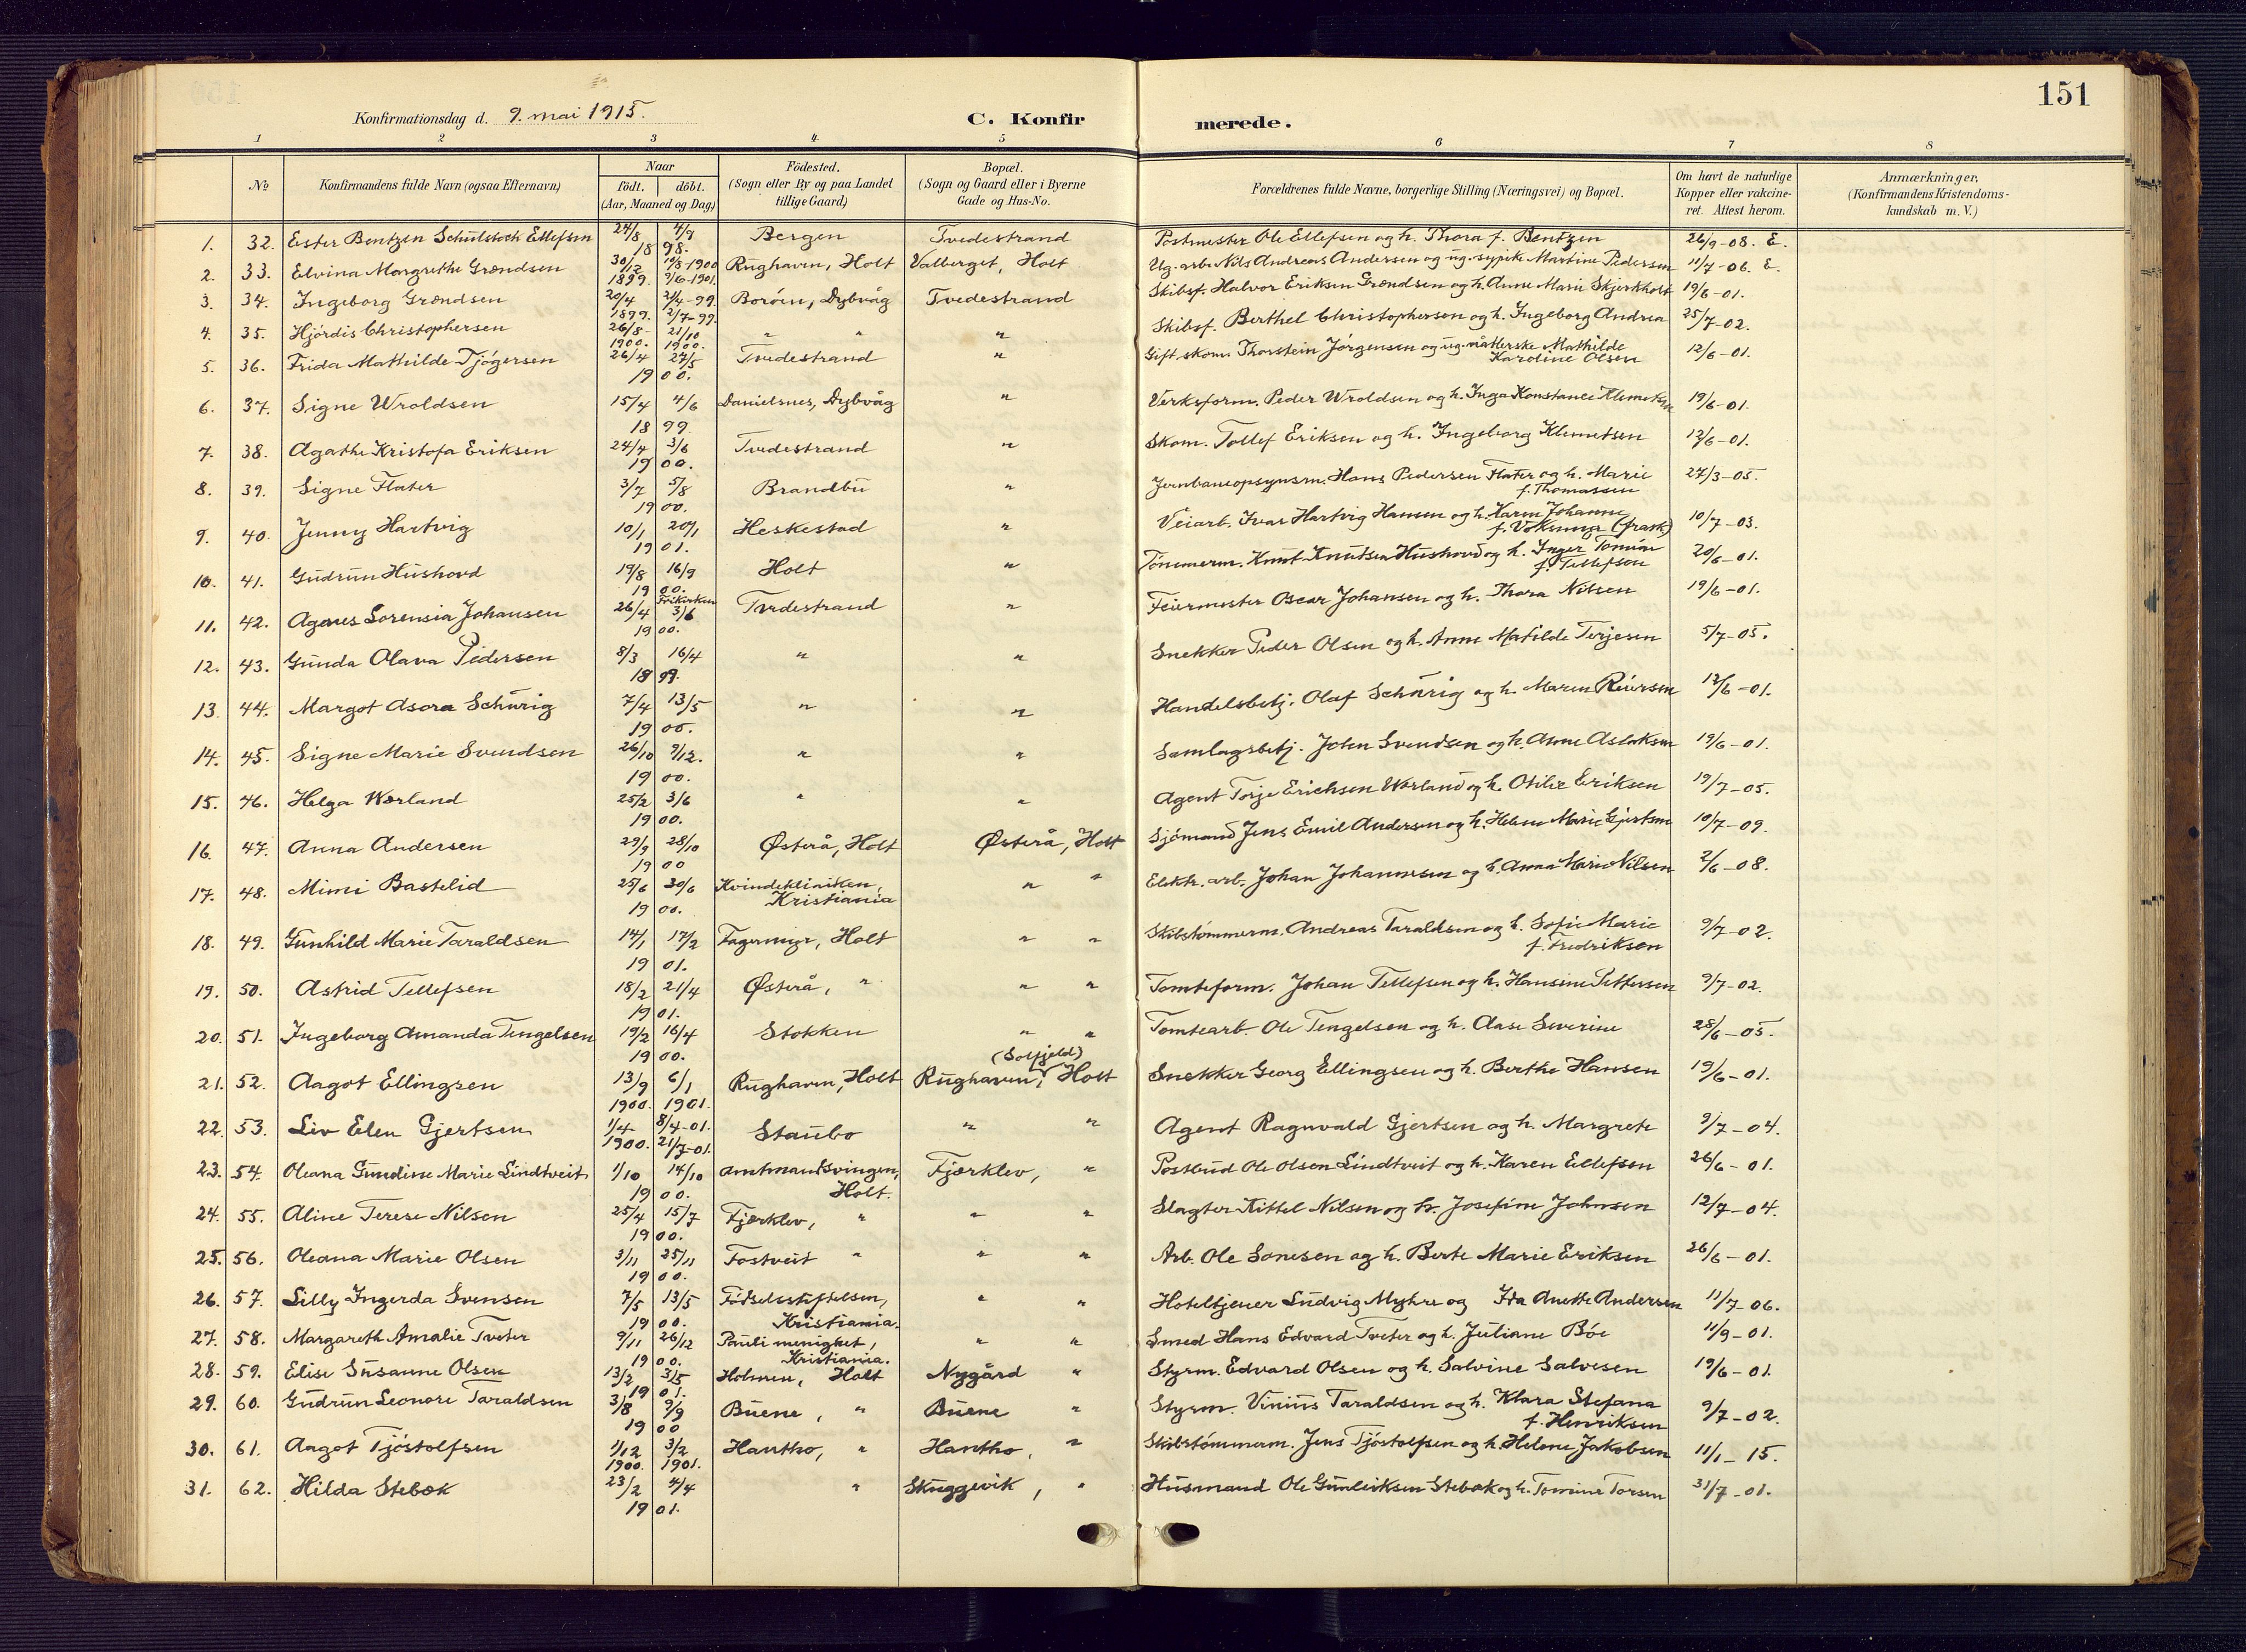 151
Konfirmationsdag d. 9. mai 1915.
C. Konfirmerede.
1 2 3 4 5 6 7 8
No
Konfirmandens fulde Navn (ogsaa Efternavn)
Naar
födt. döbt.
(Aar, Maaned og Dag)
Födested.
(Sogn eller By og paa Landet
tillige Gaard)
Bopæl.
(Sogn og Gaard eller i Byerne
Gade og Hus-No.
Forældrenes fulde Navne, borgerlige Stilling (Næringsvei) og Bopæl.
Om havt de naturlige
Kopper eller vakcine-
ret. Attest herom.
Anmærkninger.
(Konfirmandens Kristendoms-
kundskab m. V.)
1. 32. Ester Bentzen Schulstock Ellefsen 24/8 4/9 Bergen Tvedestrand Postmester Ole Ellefsen og h. Thora f. Bentzen 26/9-08. E.
1898.
2. 33. Elvina Margrethe Grændsen 30/12 19/8-1900 Rughaven, Holt Valberget, Holt Ug. arb. Nils Andreas Andersen og ug. sypike Martine Pedersen 11/7-06. E.
1899. 9/6-1901.
3. 34. Ingeborg Grændsen 20/4 21/4-99. Borøen, Dybvåg Tvedestrand Skibsf. Halvor Eriksen Grændsen og h. Anne Marie Skjerkholt 19/6-01.
1899. 2/7-99.
4. 35. Hjördis Christophersen 26/8- 21/10 " " " Skibsf. Berthel Christophersen og h. Ingeborg Andrea 25/7-02.
1900. 1900.
5. 36. Frida Mathilde Tjögersen 26/4 27/5 Tvedestrand " Gift skom. Thorstein Jörgensen og ug. nåtterske Mathilde 12/6-01.
Karoline Olsen
1900.
6. 37. Signe Wroldsen 15/4 4/6 Danielsnes, Dybvåg " Verksform. Peder Wroldsen og h. Inga Konstance Klemetsen 19/6-01.
1899.
7. 38. Agathe Kristofa Eriksen 24/4 3/6 Tvedestrand " Skom. Tollef Eriksen og h. Ingeborg Klemetsen 12/6-01.
1900.
8. 39. Signe Flater 3/7 5/8 Brandbu " Jernbaneopsynsm. Hans Pedersen Flater og h. Marie 27/3-05.
f. Thomassen
1900.
9. 40. Jenny Hartvig 10/1 20/1 Heskestad " Veiarb. Ivar Hartvig Hansen og h. Karen Johanne 10/7-03.
1901.
10. 41. Gudrun Hushovd 19/8 16/9 Holt " Tömmerm. Knut Knutsen Hushovd og h. Inger Tomine 20/6-01.
f. Tellefsen
1900.
11. 42. Agnes Sorensia Johansen 26/4 Frikirken 3/6 Tvedestrand " Feiermester Oscar Johansen og h. Thora Nilsen 19/6-01.
1900.
12. 43. Gunda Olava Pedersen 8/3 16/4 " " Snekker Peder Olsen og h. Anne Matilde Terjesen 5/7-05.
1899.
13. 44. Margot Asora Schürig 7/4 13/5 " " Handelsbetj. Olaf Schürig og h. Maren Reiersen 12/6-01.
1900.
14. 45. Signe Marie Svendsen 26/10 9/12. " " Samlagsbetj. John Svendsen og h. Anne Aslaksen 19/6-01.
1900.
15. 46. Helga Wærland 25/2 3/6 " " Agent Terje Erichsen Wærland og h. Otilie Eriksen 19/7-05.
1900.
16. 47. Anna Andersen 29/9 28/10 Østerå, Holt Østerå, Holt Sjömand Jens Emil Andersen og h. Helene Marie Gjertsen 10/7-09.
1900
17. 48. Mimi Bastelid 25/6 30/6 Kvindekliniken, " " Elektr. arb. Johan Johannesen og h. Anna Marie Nilsen 2/6-08.
Kristiania
1900.
18. 49. Gunhild Marie Taraldsen 14/1 17/2 Fagermyr, Holt " " Skibstömmerm. Andreas Taraldsen og h. Sofie Marie 9/7-02.
f. Fredriksen
1901.
19. 50. Astrid Tellefsen 18/2 21/4 Østerå, " " " Tomteform. Johan Tellefsen og h. Hansine Pettersen 9/7-02.
1901.
20. 51. Ingeborg Amanda Tengelsen 19/2 16/4 Stokken " " Tomtearb. Ole Tengelsen og h. Aase Severine 28/6-05.
1900.
(Solfjeld)
21. 52. Aagot Ellingsen 13/9 6/1 Rughaven, Holt Rughaven, Holt Snekker Georg Ellingsen og h. Berthe Hansen 19/6-01.
1900. 1901.
22. 53. Liv Elen Gjertsen 1/4 8/4-01. Staubo " " Agent Ragnvald Gjertsen og h. Margrete 9/7-04.
1900. 21/7-01.
23. 54. Oleana Gundine Marie Lindtveit 1/10 14/10 Amtmandsvingen, Fjærklev, " Postbud Ole Olsen Lindtveit og h. Karen Ellefsen 26/6-01.
Holt.
1900.
24. 55. Aline Terese Nilsen 25/4 15/7 Fjærklev, " " " Slagter Kittel Nilsen og h. Josefine Johnsen 12/7-04.
1900.
25. 56. Oleana Marie Olsen 3/11 25/11 Fostveit " " " Arb. Ole Sørnesen og h. Berte Marie Eriksen 26/6-01.
1900.
26. 57. Lilly Ingerda Svensen 7/5 13/5 Födselsstiftelsen, " " Hoteltjener Ludvig Myhre og Ida Anette Andersen 11/7-06.
Kristiania.
1900.
27. 58. Margareth Amalie Tveter 9/11 26/12 Pauli menighet, " " Smed Hans Edvard Tveter og h. Juliane Böe 11/9-01.
Kristiania.
1900.
28. 59. Elise Susanne Olsen 13/2 3/5 Holmen, Holt Nygård " Styrm. Edvard Olsen og h. Salvine Salvesen 19/6-01.
1901.
29. 60. Gudrun Leonore Taraldsen 3/8 9/9 Buene, " Buene " Styrm. Vinius Taraldsen og h. Klara Stefana 9/7-02.
f. Henriksen
1900
30. 61. Aagot Tjöstolfsen 1/12 3/2 Hantho, " Hantho, " Skibstömmerm. Jens Tjöstolfsen og h. Helene Jakobsen 11/1-15.
1900. 1901.
31. 62. Hilda Stebæk 23/2 4/4 " Skuggevik, " Husmand Ole Gunleiksen Stebæk og h. Tomine Torsen 31/7-01.
1901.